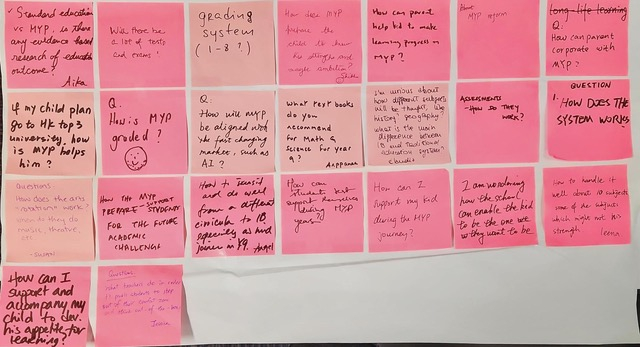 ✓ Standard education
vs MYP, is there
any evidence based
research of education
outcome?
Aika
Will there be
a lot of tests
and exams?
grading
system
(1-8?)
How does MYP
prepare the
child to
his strengths and
How can parent
help kid to make
learning progress in
MYP?
About
MYP
long-life learning
Q:
How can parent
corporate with
MYP?
If my child plan
go to HK top 3
university, how
is MYP helps
him?
Q.
How is MYP
graded?
Q:
How will MYP
be aligned with
the fast changing
market, such as
A.I?
What text books
do you
recommend
for Math &
Science for year
9?
I'm curious about
how different subjects
will be thought, like
history, geography?
what is the main
difference between
IB and traditional
education system?
Claudia
ASSESSMENTS
- HOW DO THEY
WORK?
QUESTION
1. HOW DOES THE
SYSTEM WORKS
Questions
How does the arts
rotation work?
when do they do
music, theatre,
etc.
HOW THE MYP
PREPARE STUDENTS
FOR THE FUTURE
ACADEMIC
CHALLENGE
How to
and do well
from a different
to IB,
especially as
joiner in Y9.
Angel
How can
students best
support themselves
during MYP
years?
How can I
support my kid
during the MYP
journey?
I am wondering
how the school
can enable the kid
to be the one
they want to be
How to handle it
well about 10 subjects
some of the subjects
which might not his
strength
Leena
How can I
support and
accompany my
child to dev.
his appetite for
learning?
Questions:
What teachers do in order
to push students to step
out of their comfort zone
and think out of the box?